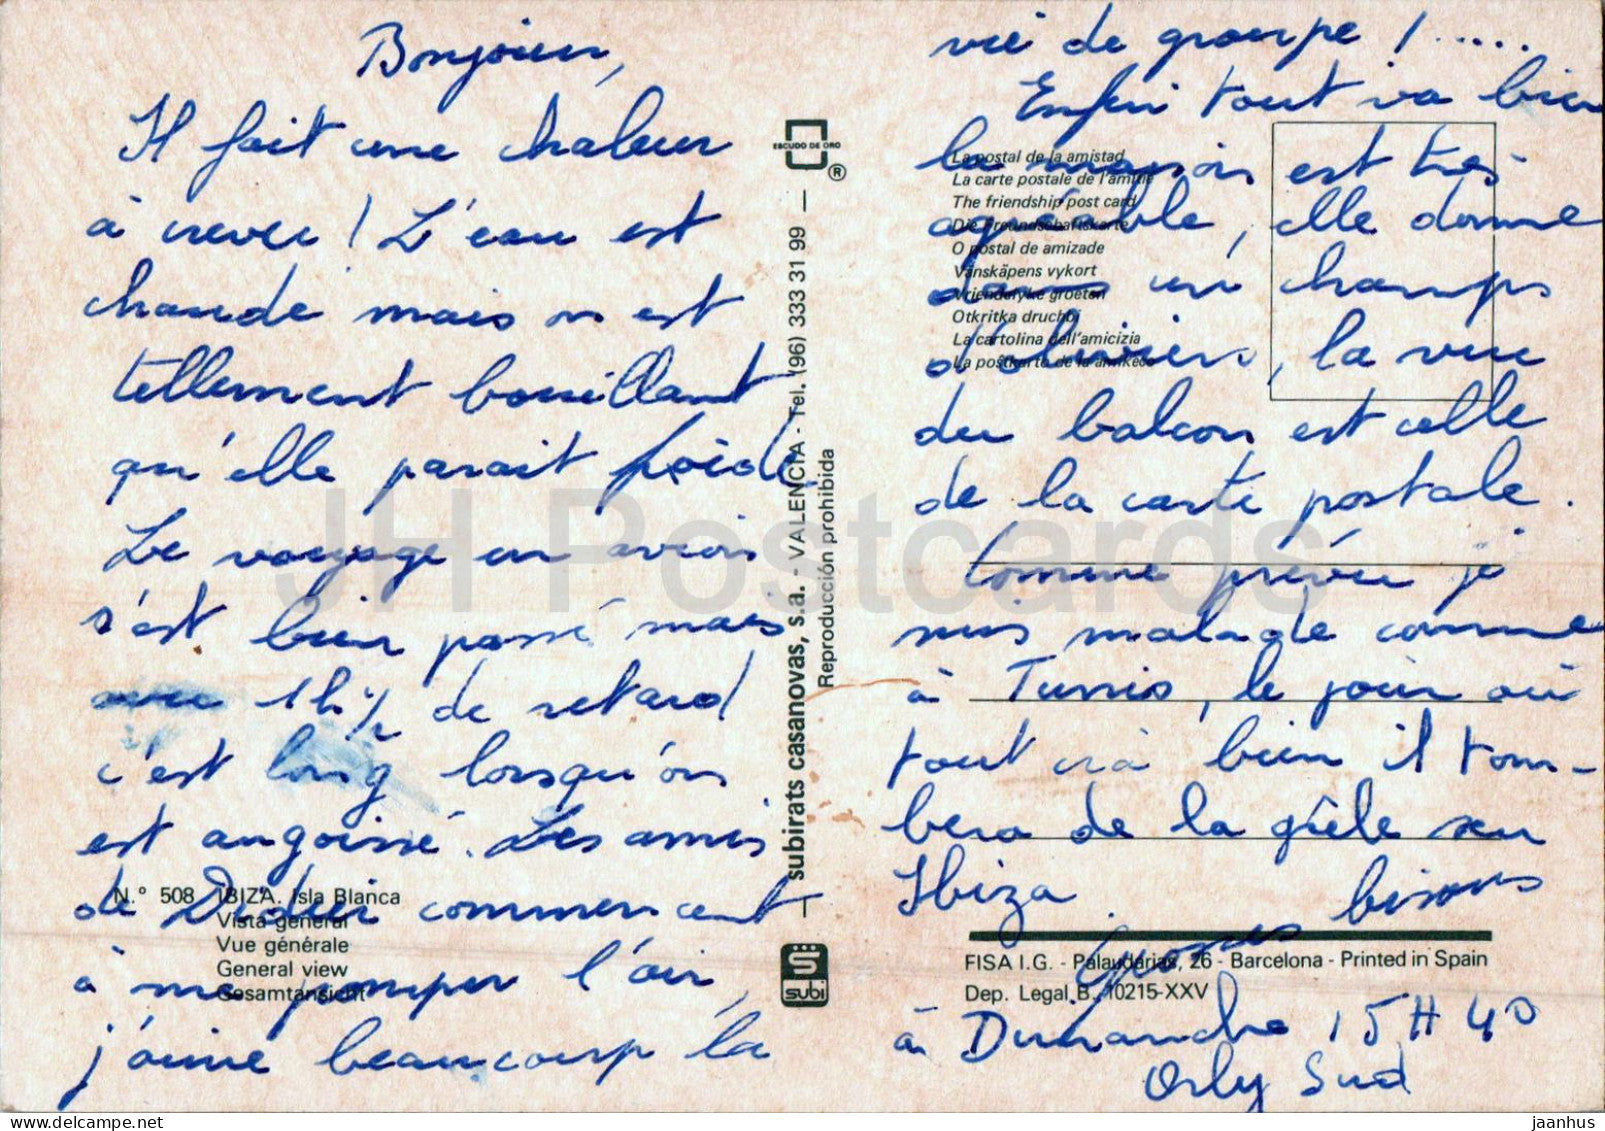 Bonjour,
Il fait une chaleur
à crever ! L'eau est
chaude mais on est
tellement bouillant
qu'elle parait froide
Le voyage en avion
s'est bien passé mais
avec 1h 1/2 de retard
c'est long lorsqu'on
est angoissé. Les amis
de Didier commencent
à me pomper l'air,
j'aime beaucoup la
vie de groupe ! .....
Enfin tout va bien
la maison est très
agréable, elle donne
un champs
d'oliviers, la vue
du balcon est celle
de la carte postale.
Comme prévu je
suis malade comme
à Tunis, le jour où
tout ira bien il tom-
bera de la grêle sur
Ibiza
Grosses bisous
à Dimanche 15H40
Orly Sud
ESCUDO DE ORO
®
subirats casanovas, s.a. - VALENCIA - Tel. (96) 333 31 99 —
Reproducción prohibida
subi
La postal de la amistad
La carte postale de l'amitié
The friendship post card
Die Freundschaftskarte
O postal de amizade
Vänskäpens vykort
Vriendelyke groeten
Otkritka druchbi
La cartolina dell'amicizia
La poŝtkarto de la amikeco
N.° 508 IBIZA. Isla Blanca
Vista general
Vue générale
General view
Gesamtansicht
FISA I.G. - Palaudarias, 26 - Barcelona - Printed in Spain
Dep. Legal B. 10215-XXV
JH Postcards
delcampe.net
jaanhus